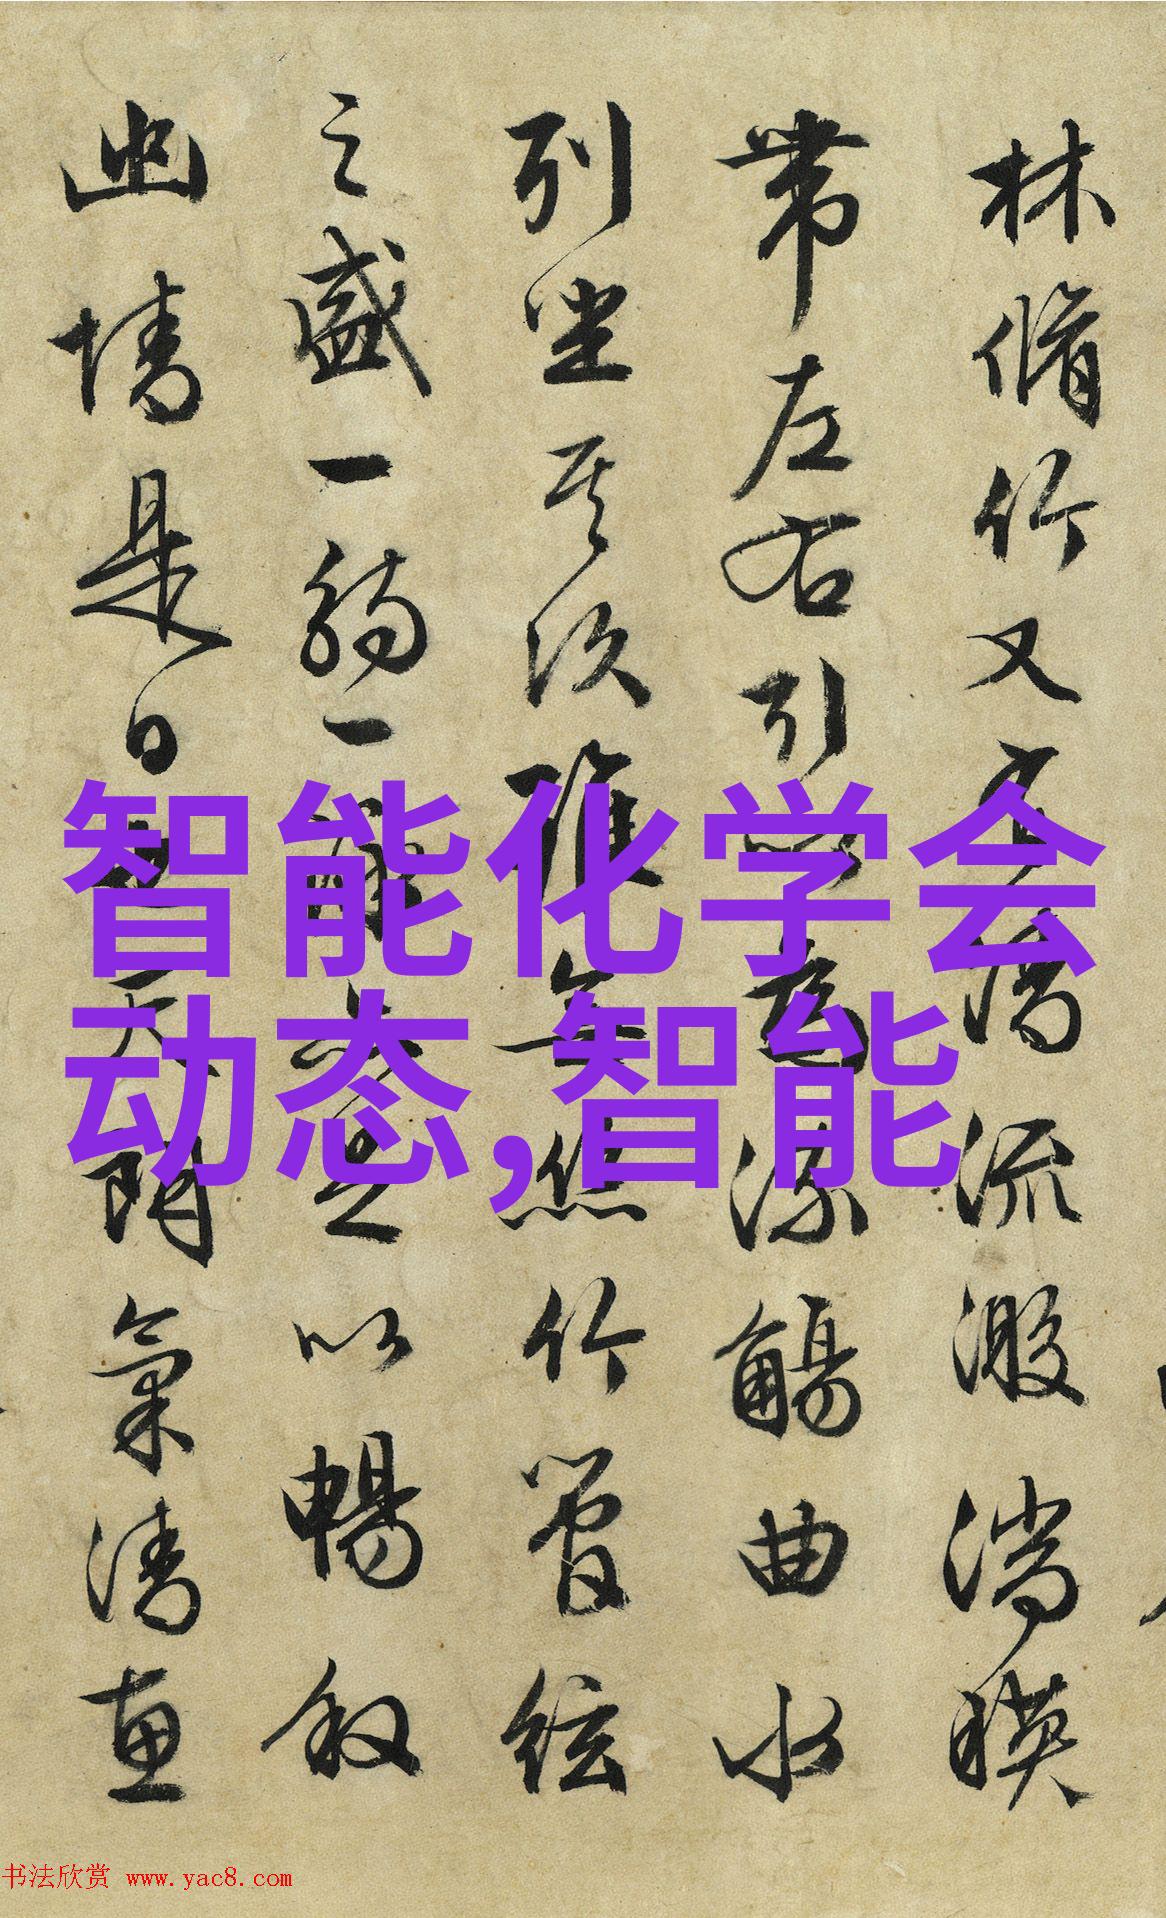 林脩竹又有清流激湍暎
帶左右引以為流觴曲水
列坐其次雖無絲竹管絃
之盛一觴一詠亦足以暢叙
幽情是日也天朗氣清惠
智能化学会
动态,智能
书法欣赏 www.yac8.com